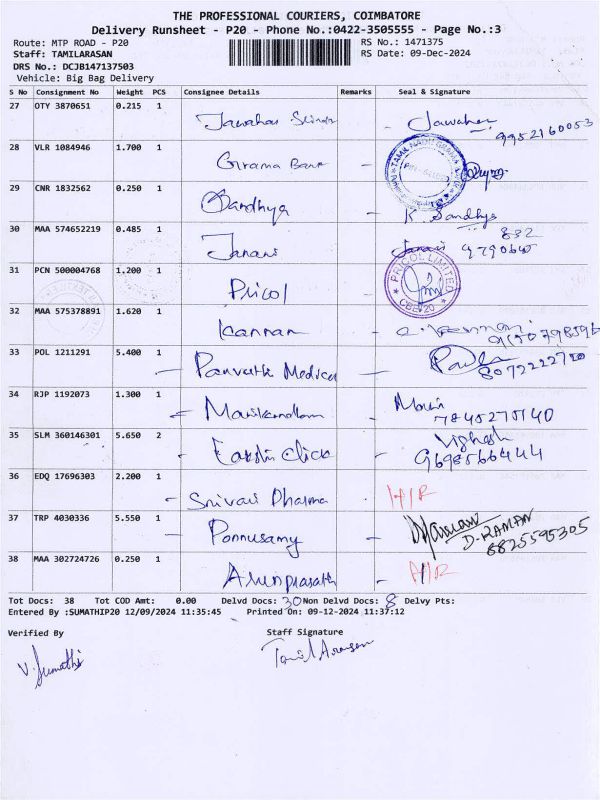 THE PROFESSIONAL COURIERS, COIMBATORE
Delivery Runsheet - P20 - Phone No.:0422-3505555 - Page No.:3
Route: MTP ROAD - P20 RS No.: 1471375
Staff: TAMILARASAN RS Date: 09-Dec-2024
DRS No.: DCJB147137503
Vehicle: Big Bag Delivery
S No Consignment No Weight PCS Consignee Details Remarks Seal & Signature
27 OTY 3870651 0.215 1 Jawahar - Jawahar 9952160053
28 VLR 1084946 1.700 1 Grama Bank -
29 CNR 1832562 0.250 1 Sandhya - K. Sandhya
30 MAA 574652219 0.485 1 Janani 832
Janani 9790645
31 PCN 500004768 1.200 1 Pricol PRICOL LIMITED CBE-20
32 MAA 575378891 1.620 1 Kannan -
33 POL 1211291 5.400 1 Medical 8072222710
34 RJP 1192073 1.300 1 - Manikandan Mani
7845275140
35 SLM 360146301 5.650 2 - Click - Vighesh
9698566444
36 EDQ 17696303 2.200 1 - Pharma -
37 TRP 4030336 5.550 1 - Ponnusamy D-RAMAN
8825595305
38 MAA 302724726 0.250 1 Arunprasath -
Tot Docs: 38 Tot COD Amt: 0.00 Delvd Docs: 30 Non Delvd Docs: 8 Delvy Pts:
Entered By :SUMATHIP20 12/09/2024 11:35:45 Printed On: 09-12-2024 11:37:12
Verified By Staff Signature
V. Sumathi Tamil Arasan